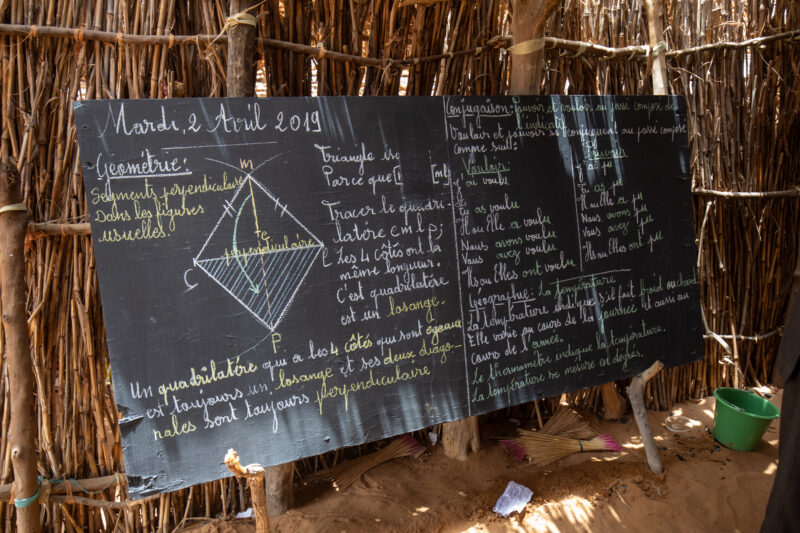 Mardi, 2 Avril 2019
Géométrie:
Segments perpendiculaire
Dans les figures
usuelles
m
perpendiculaire
C
L
P
Triangle iso
Parce que
Tracer le quadri-
latère
Les 4 côtés ont la
même longueur.
C'est quadrilatère
est un losange.
Un quadrilatère qui a les 4 côtés qui sont égaux
est toujours un losange et ses deux diago-
nales sont toujours perpendiculaire
Conjugaison: Pouvoir et vouloir au passé composé de
l'indicatif
Vouloir et pouvoir se conjuguent au passé composé
comme suit:
Vouloir
J'ai voulu
Tu as voulu
Il ou elle a voulu
Nous avons voulu
Vous avez voulu
Ils ou Elles ont voulu
Pouvoir
J'ai pu
Tu as pu
Il ou elle a pu
Nous avons pu
Vous avez pu
Ils ou Elles ont pu
Géographie: La température
La température indique s'il fait froid ou chaud.
Elle varie au cours de la journée et aussi au
cours de l'année.
Le thermomètre indique la température.
La température se mesure en degrés.